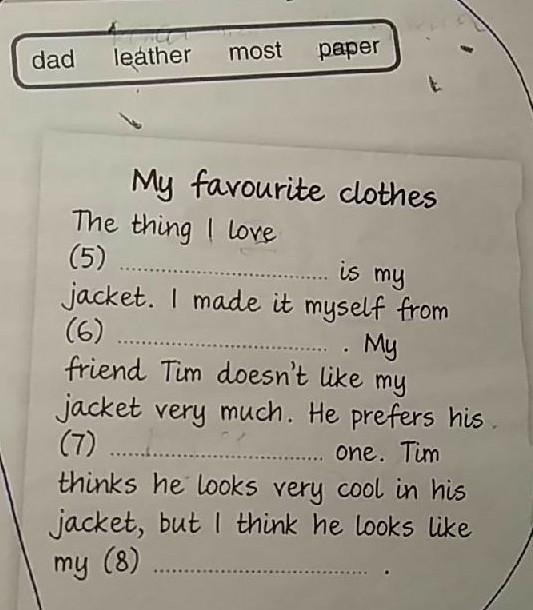 dad leather most paper
My favourite clothes
The thing I love
(5) .............................. is my
jacket. I made it myself from
(6) .............................. . My
friend Tim doesn't like my
jacket very much. He prefers his
(7) .............................. one. Tim
thinks he looks very cool in his
jacket, but I think he looks like
my (8) .............................. .